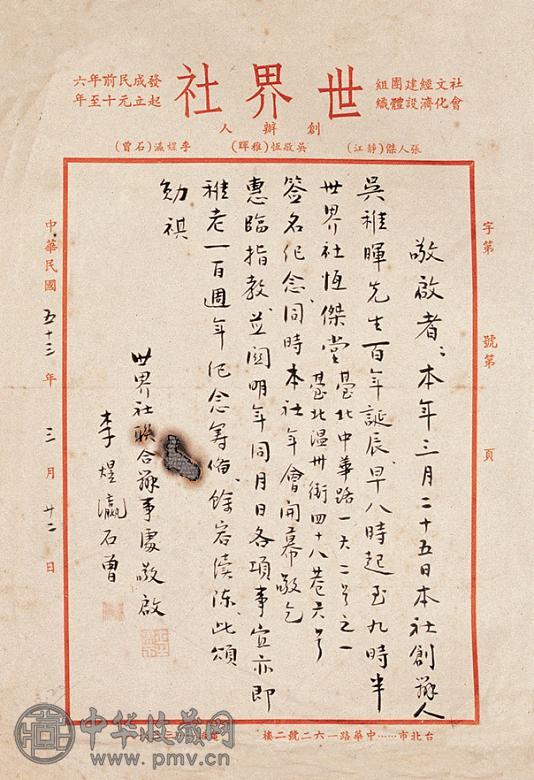 社會文化經濟建設團體組織
世界社
發起成立民元前十年至六年
創辦人
張人傑(靜江) 吳敬恆(稚暉) 李煜瀛(石曾)
字第 號第 頁
敬啟者：本年三月二十五日本社創辦人
吳稚暉先生百年誕辰、早八時起至九時半
世界社恆傑堂臺北中華路一六二号之一
臺北溫州街四十八巷六号
簽名紀念同時本社年會開幕敬乞
惠臨指教、並圖明年同月日各項事宜亦即
稚老一百週年紀念籌備、餘容續陳、此頌
勛祺
世界社聯合辦事處敬啟
李煜瀛石曾
中華民國五十三年三月廿二日
台北市……中華路一六二號二樓
中华收藏网
www.pmv.cn